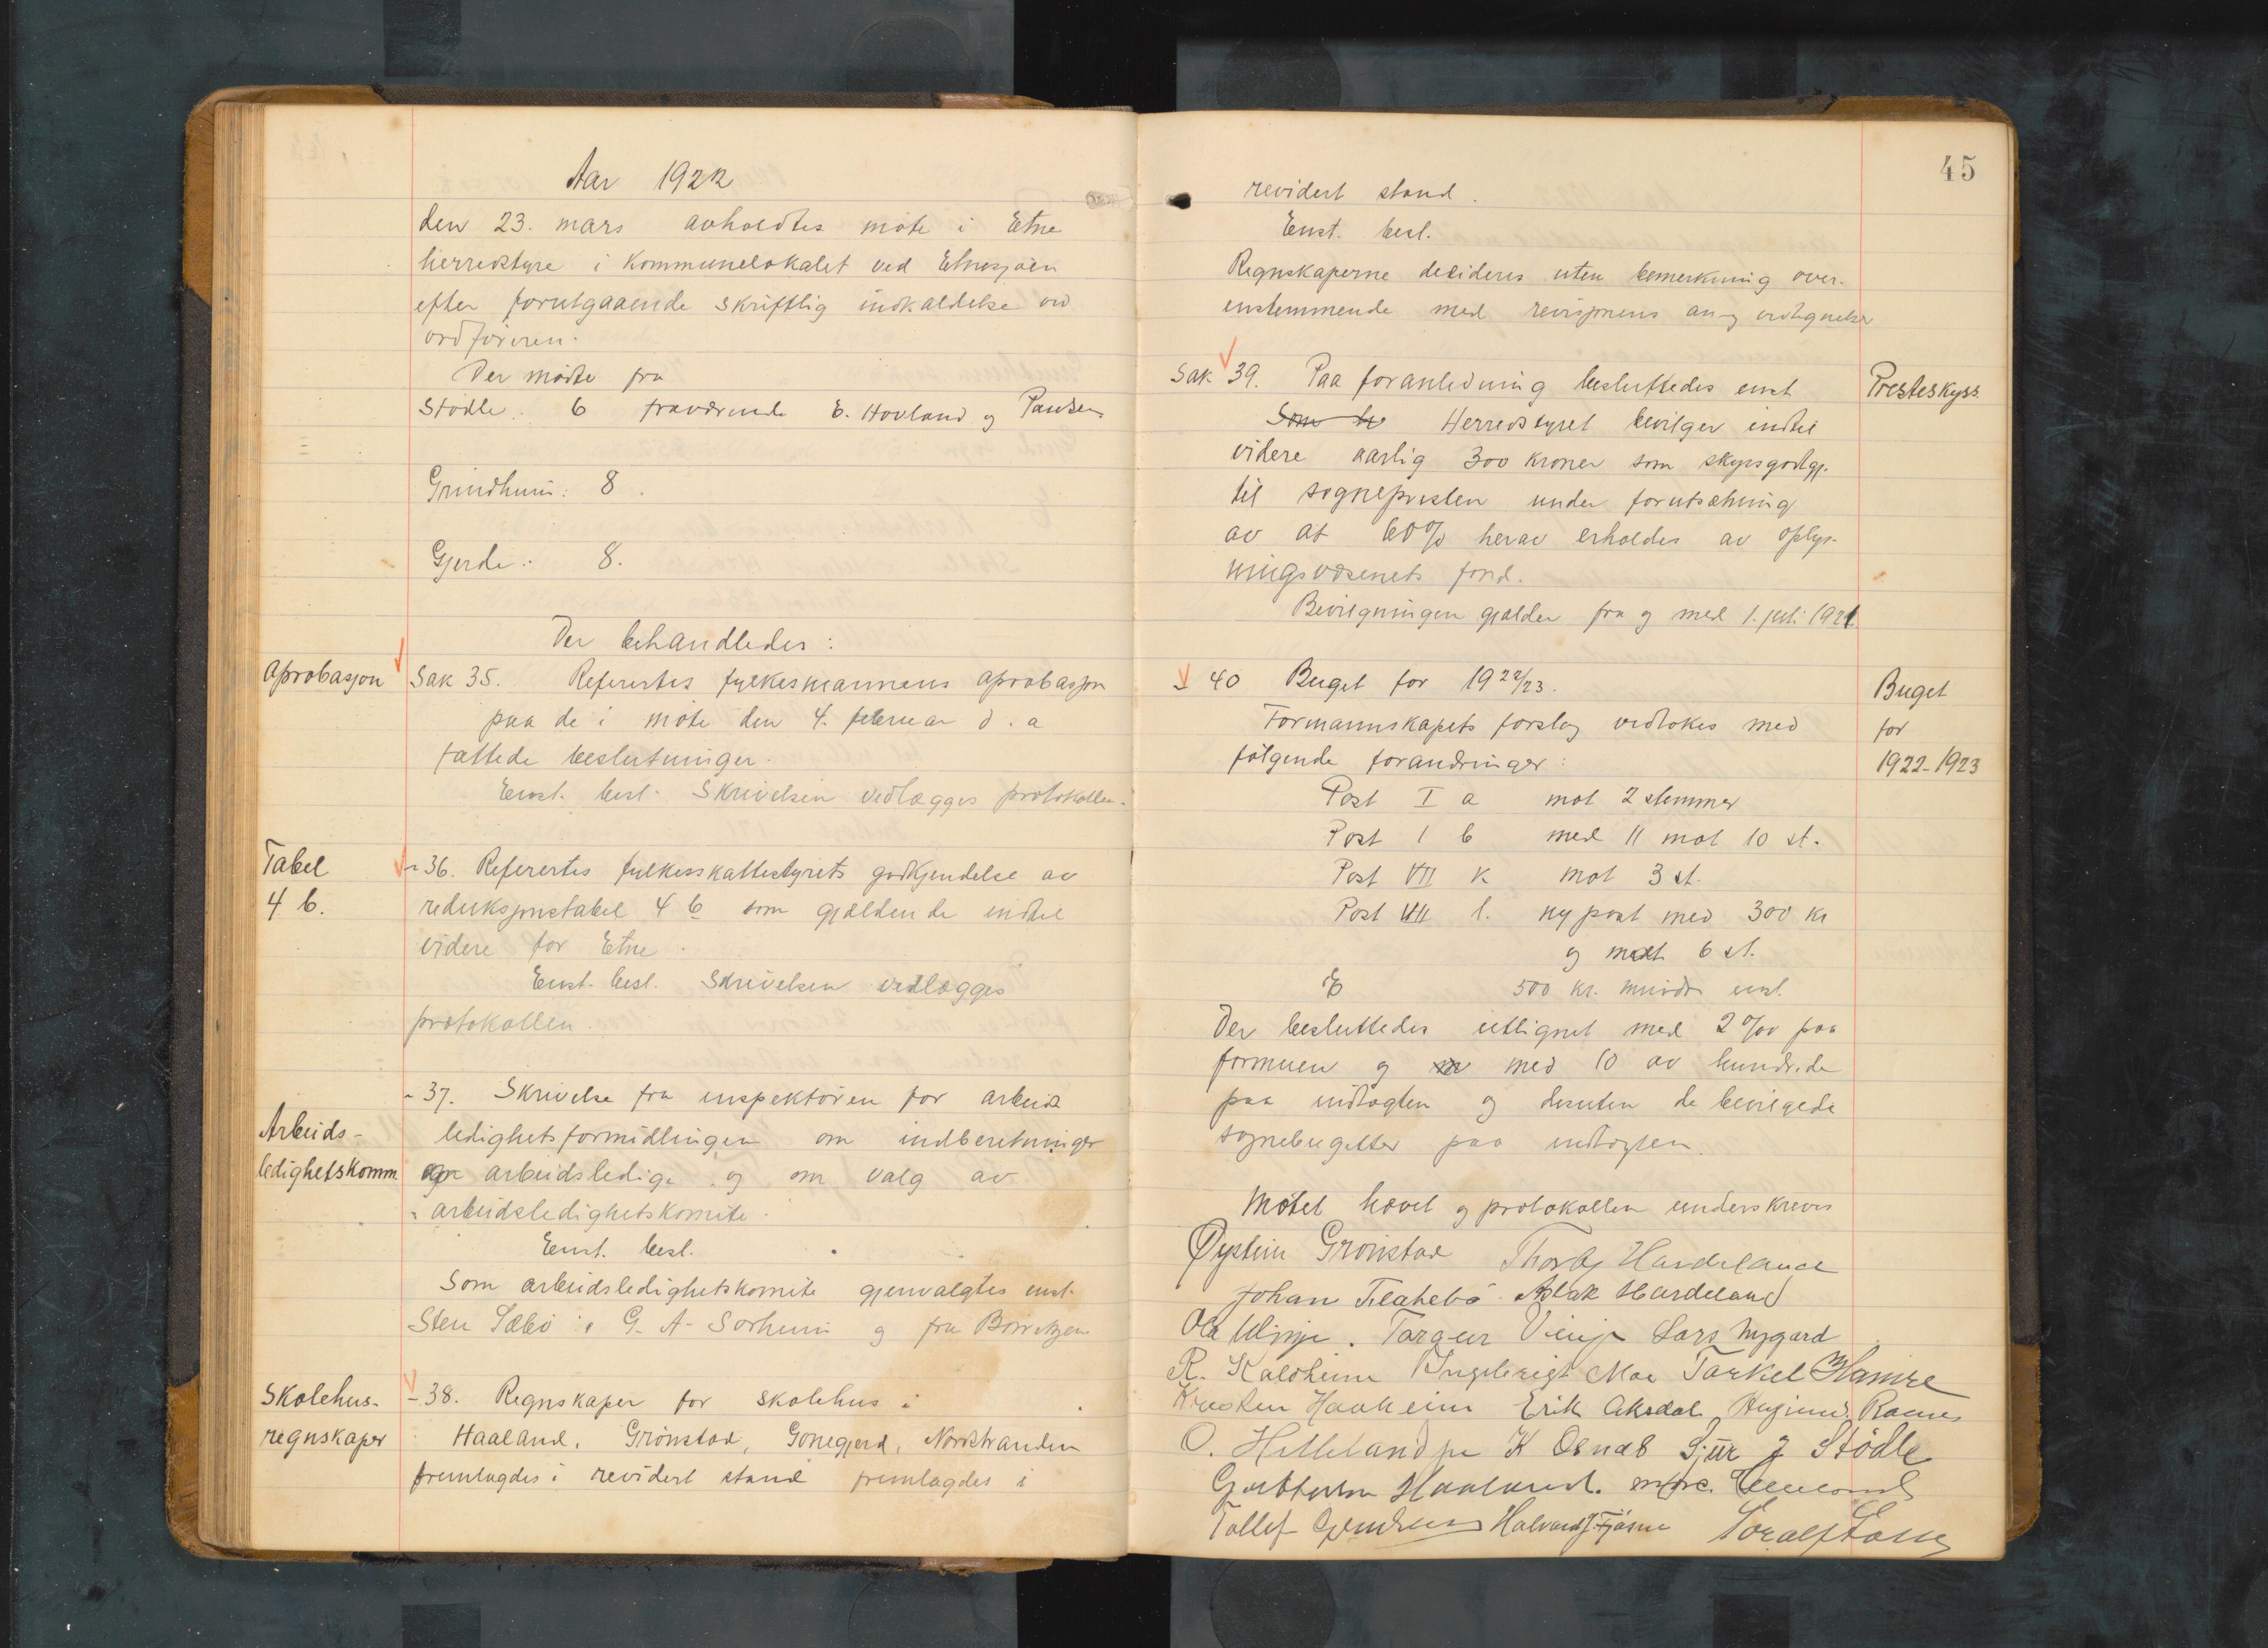 Aar 1922
den 23. mars avholdtes møte i Etne
herredstyre i kommunelokalet ved Etnesjøen
efter forutgaaende skriftlig indkaldelse av
ordføreren.
Der møtte fra
Stødle: 6 fraværende E. Hovland og Paulsen
Grindheim: 8.
Gjerde: 8.
Der behandledes:
Aprobasjon
Sak 35. Referertes fylkesmannens aprobasjon
paa de i møte den 4. februar d. a
fattede beslutninger.
Enst. besl. Skrivelsen vedlægges protokollen.
Tabel
4 b.
- 36. Referertes fylkesskattestyrets godkjendelse av
reduksjonstabel 4 b som gjældende indtil
videre for Etne.
Enst. besl. Skrivelsen vedlægges
protokollen.
Arbeids-
ledighetskomm.
- 37. Skrivelse fra inspektøren for arbeids
ledighetsformidlingen om indberetninger
arbeidsledige og om valg av
arbeidsledighetskomite.
Enst. besl.
Som arbeidsledighetskomite gjenvalgtes enst.
Sten Sæbø, G. A. Sørheim og fru
Skolehus-
regnskaper
- 38. Regnskaper for skolehus i
Haaland, Grønstad, Gonegjerd, Nordstranden
fremlagdes i revidert stand fremlagdes i
45
revidert stand.
Enst. besl.
Regnskaperne decideres uten bemerkning over-
enstemmende med revisjonens an- og vedtegnelser
Sak 39. Paa foranledning besluttedes enst
Presteskyss.
Som he Herredstyret bevilger indtil
videre aarlig 300 kroner som skyssgodtgj.
til sognepresten under forutsætning
av at 60% herav erholdes av oplys-
ningsvæsenets fond.
Bevilgningen gjælder fra og med 1. juli 1921
- 40 Buget for 1922/23.
Buget
for
1922-1923
Formannskapets forslag vedtokes med
følgende forandringer:
Post I a mot 2 stemmer
Post I b med 11 mot 10 st.
Post VII k mot 3 st.
Post VII l. ny post med 300 kr
og mot 6 st.
E 500 kr. mindre enst.
Der besluttedes utlignet med 2 ‰ paa
formuen og med 10 av hundrede
paa indtægten og desuten de bevilgede
sognebugetter paa indtægten.
Møtet hævet og protokollen underskreves
Øystein Grønstad Thorbj Hardeland
Johan Flatebø Aslak Hardeland
Ola Lars Nygard
R. Kaldheim Ingebrigt Moe Torkel Hamre
Haaheim Erik Aksdal
O. Helleland K Osnes Sjur J Stødle
Guttorm Haaland.
Tollef Halvard J. Fjøsne